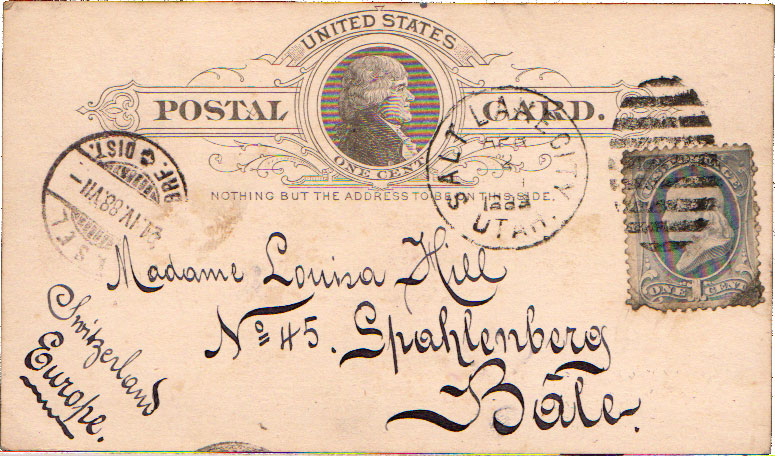 UNITED STATES
POSTAL CARD.
ONE CENT
NOTHING BUT THE ADDRESS TO BE ON THIS SIDE.
SALT LAKE CITY
UTAH.
BRF. DIST.
IV.88.VII-
ONE CENT
Madame Louisa Hill
No 45. Spahlenberg
Bâle.
Switzerland
Europe.